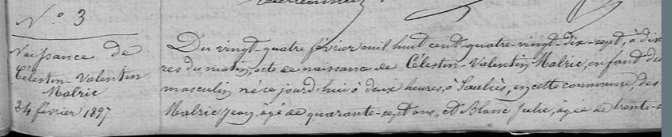 N.º 3
Naissance de
Célestin-Valentin
Malric
24 février 1897
Du vingt-quatre février mil huit cent quatre-vingt-dix-sept, à dix
res du matin, acte de naissance de Célestin-Valentin Malric, enfant du
masculin, né ce jourd'hui à deux heures, à Sauliès, en cette commune, des
Malric Jean, âgé de quarante-sept ans, et Blanc Julie, âgée de trente-s